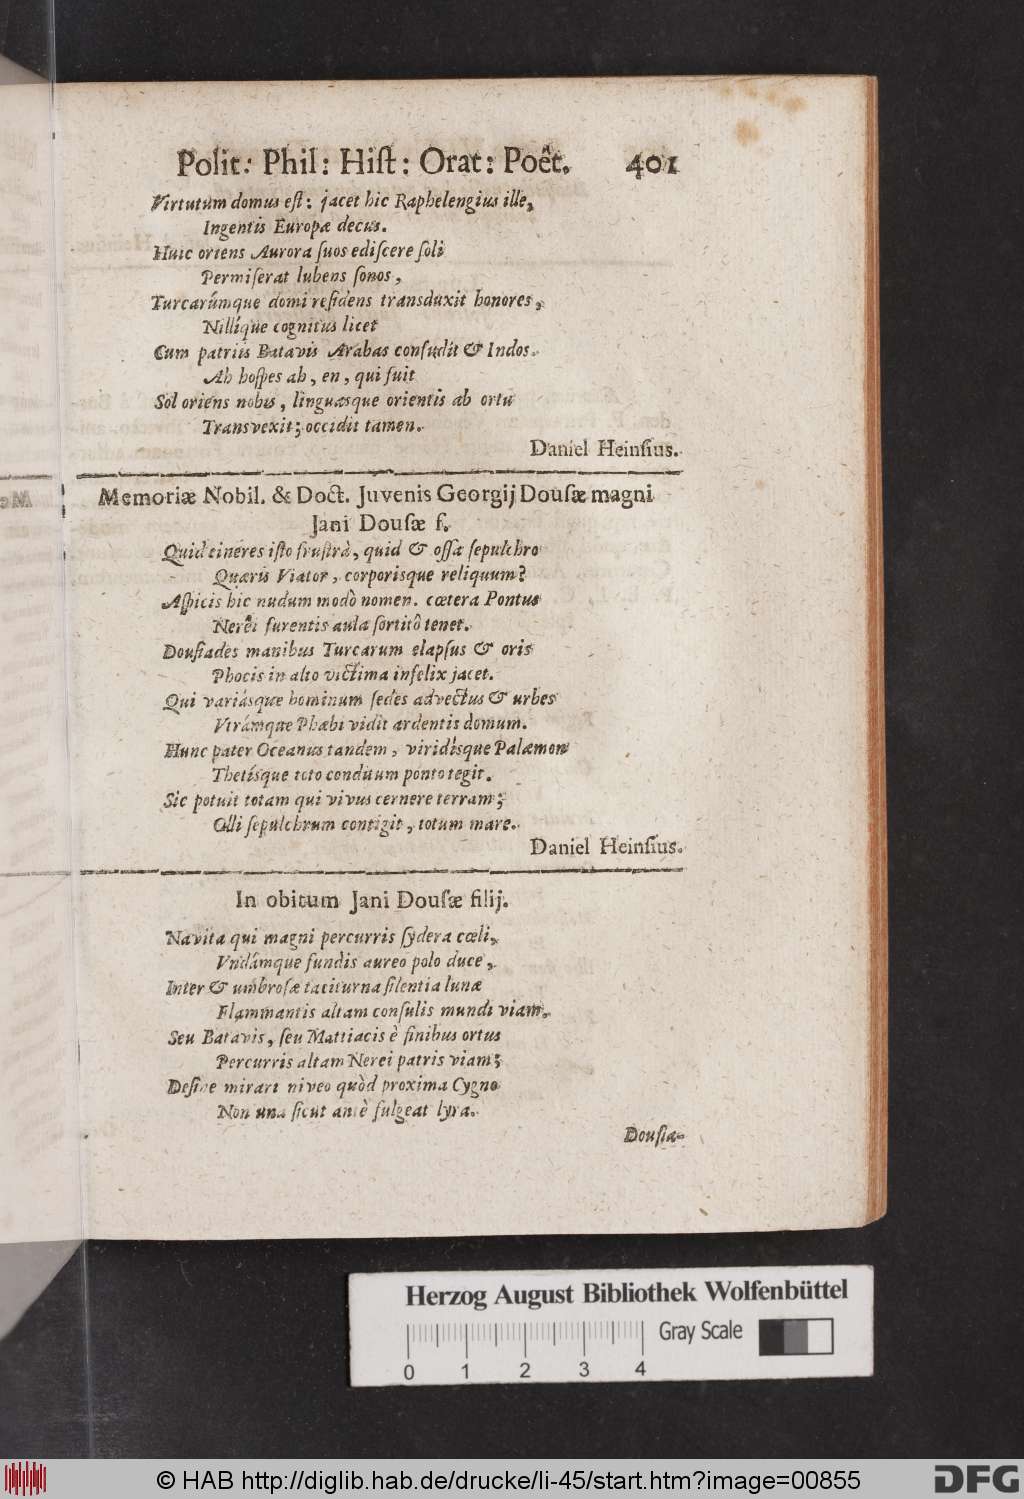 Polit: Phil: Hiſt: Orat: Poêt. 401
Virtutum domus eſt: jacet hic Raphelengius ille,
Ingentis Europæ decus.
Huic oriens Aurora ſuos ediſcere ſoli
Permiſerat lubens ſonos,
Turcarúmque domi reſidens transduxit honores,
Nilíque cognitus licet
Cum patriis Batavis Arabas conſudit & Indos.
Ah hoſpes ah, en, qui fuit
Sol oriens nobis, linguasque orientis ab ortu
Transvexit; occidit tamen.
Daniel Heinſius.
Memoriæ Nobil. & Doct. Juvenis Georgij Douſæ magni
Jani Douſæ f.
Quid cineres iſto fruſtrà, quid & oſſa ſepulchro
Quæris Viator, corporisque reliquum?
Aſpicis hic nudum modò nomen. cœtera Pontus
Nerëi furentis aula ſortitò tenet.
Douſiades manibus Turcarum elapſus & oris
Phocis in alto victima infelix jacet.
Qui variásque hominum ſedes advectus & urbes
Vtrámque Phœbi vidit ardentis domum.
Hunc pater Oceanus tandem, viridisque Palæmon
Thetisque toto conditum ponto tegit.
Sic potuit totam qui vivus cernere terram;
Olli ſepulchrum contigit, totum mare.
Daniel Heinſius.
In obitum Jani Douſæ filij.
Navita qui magni percurris ſydera cœli,
Vndámque fundis aureo polo duce,
Inter & umbroſæ taciturna ſilentia lunæ
Flammantis altam conſulis mundi viam,
Seu Batavis, ſeu Mattiacis è finibus ortus
Percurris altam Nerei patris viam;
Deſine mirari niveo quòd proxima Cygno
Non una ſicut antè fulgeat lyra.
Douſia-
Herzog August Bibliothek Wolfenbüttel
Gray Scale
0 1 2 3 4
© HAB http://diglib.hab.de/drucke/li-45/start.htm?image=00855
DFG